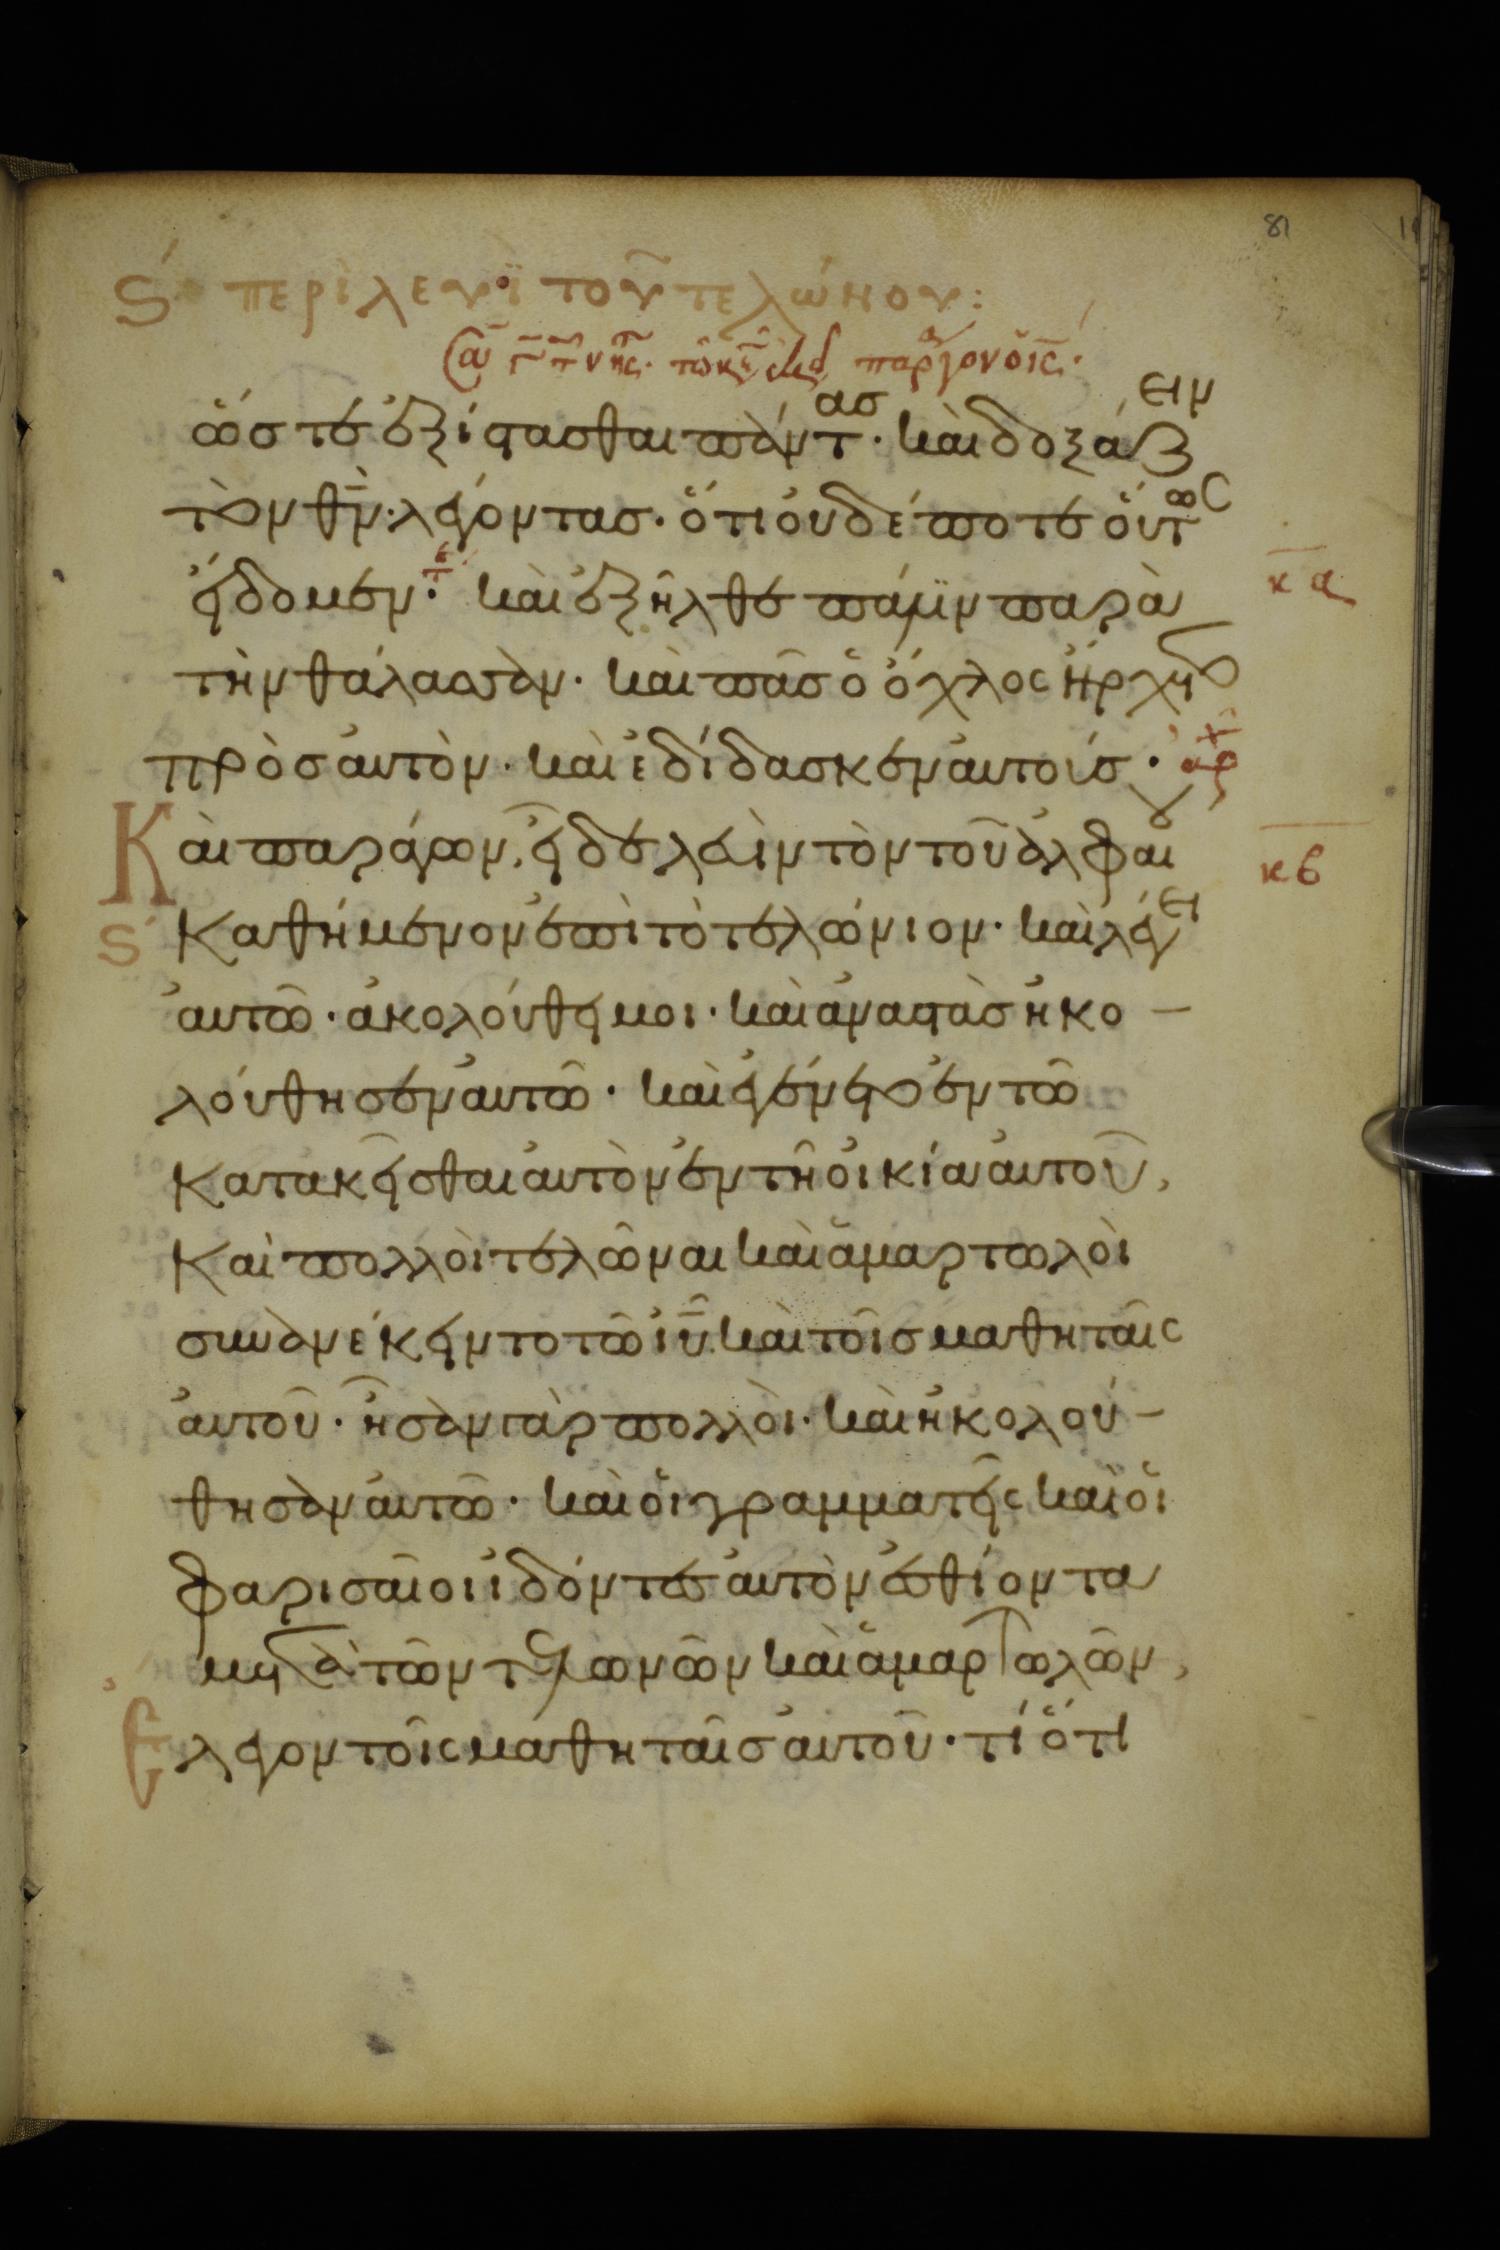 81
ϛ περὶ λευϊ τοῦ τελώνου:
ὥστε ἐξίστασθαι πάντας· καὶ δοξάζειν
τὸν θν· λέγοντας· ὅτι οὐδέποτε οὕτως
εἴδομεν· καὶ ἐξῆλθε πάλιν παρὰ
τὴν θάλασσαν· καὶ πᾶσ ὁ ὄχλος ἤρχετο
πρὸσ αὐτὸν· καὶ ἐδίδασκεν αὐτούσ· ἀρχ
κα
Καὶ παράγων, εἶδε λευὶν τὸν τοῦ ἀλφαίου
κβ
ϛ καθήμενον ἐπὶ τὸ τελώνιον· καὶ λέγει
αὐτῶ· ἀκολούθει μοι· καὶ ἀναστὰσ ἠκο-
λούθησεν αὐτῶ· καὶ ἐγένετο ἐν τῶ
κατακεῖσθαι αὐτὸν ἐν τῆ οἰκία αὐτοῦ,
καὶ πολλοὶ τελῶναι καὶ ἁμαρτωλοὶ
συνανέκειντο τῶ ἰῦ καὶ τοῖσ μαθηταῖς
αὐτοῦ· ἦσαν γὰρ πολλοὶ· καὶ ἠκολού-
θησαν αὐτῶ· καὶ οἱ γραμματεῖς καὶ οἱ
φαρισαῖοι ἰδόντεσ αὐτὸν ἐσθίοντα
μετὰ τῶν τελωνῶν καὶ ἁμαρτωλῶν,
Ελεγον τοῖς μαθηταῖσ αὐτοῦ· τί ὅτι